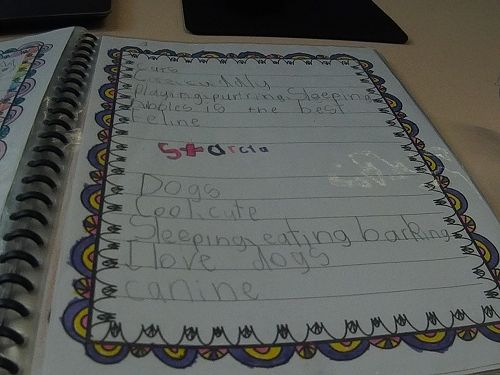 cuddly
Playing, purring, sleeping
is the best
feline
Dogs
Cool, cute
Sleeping, eating, barking
I love dogs
canine